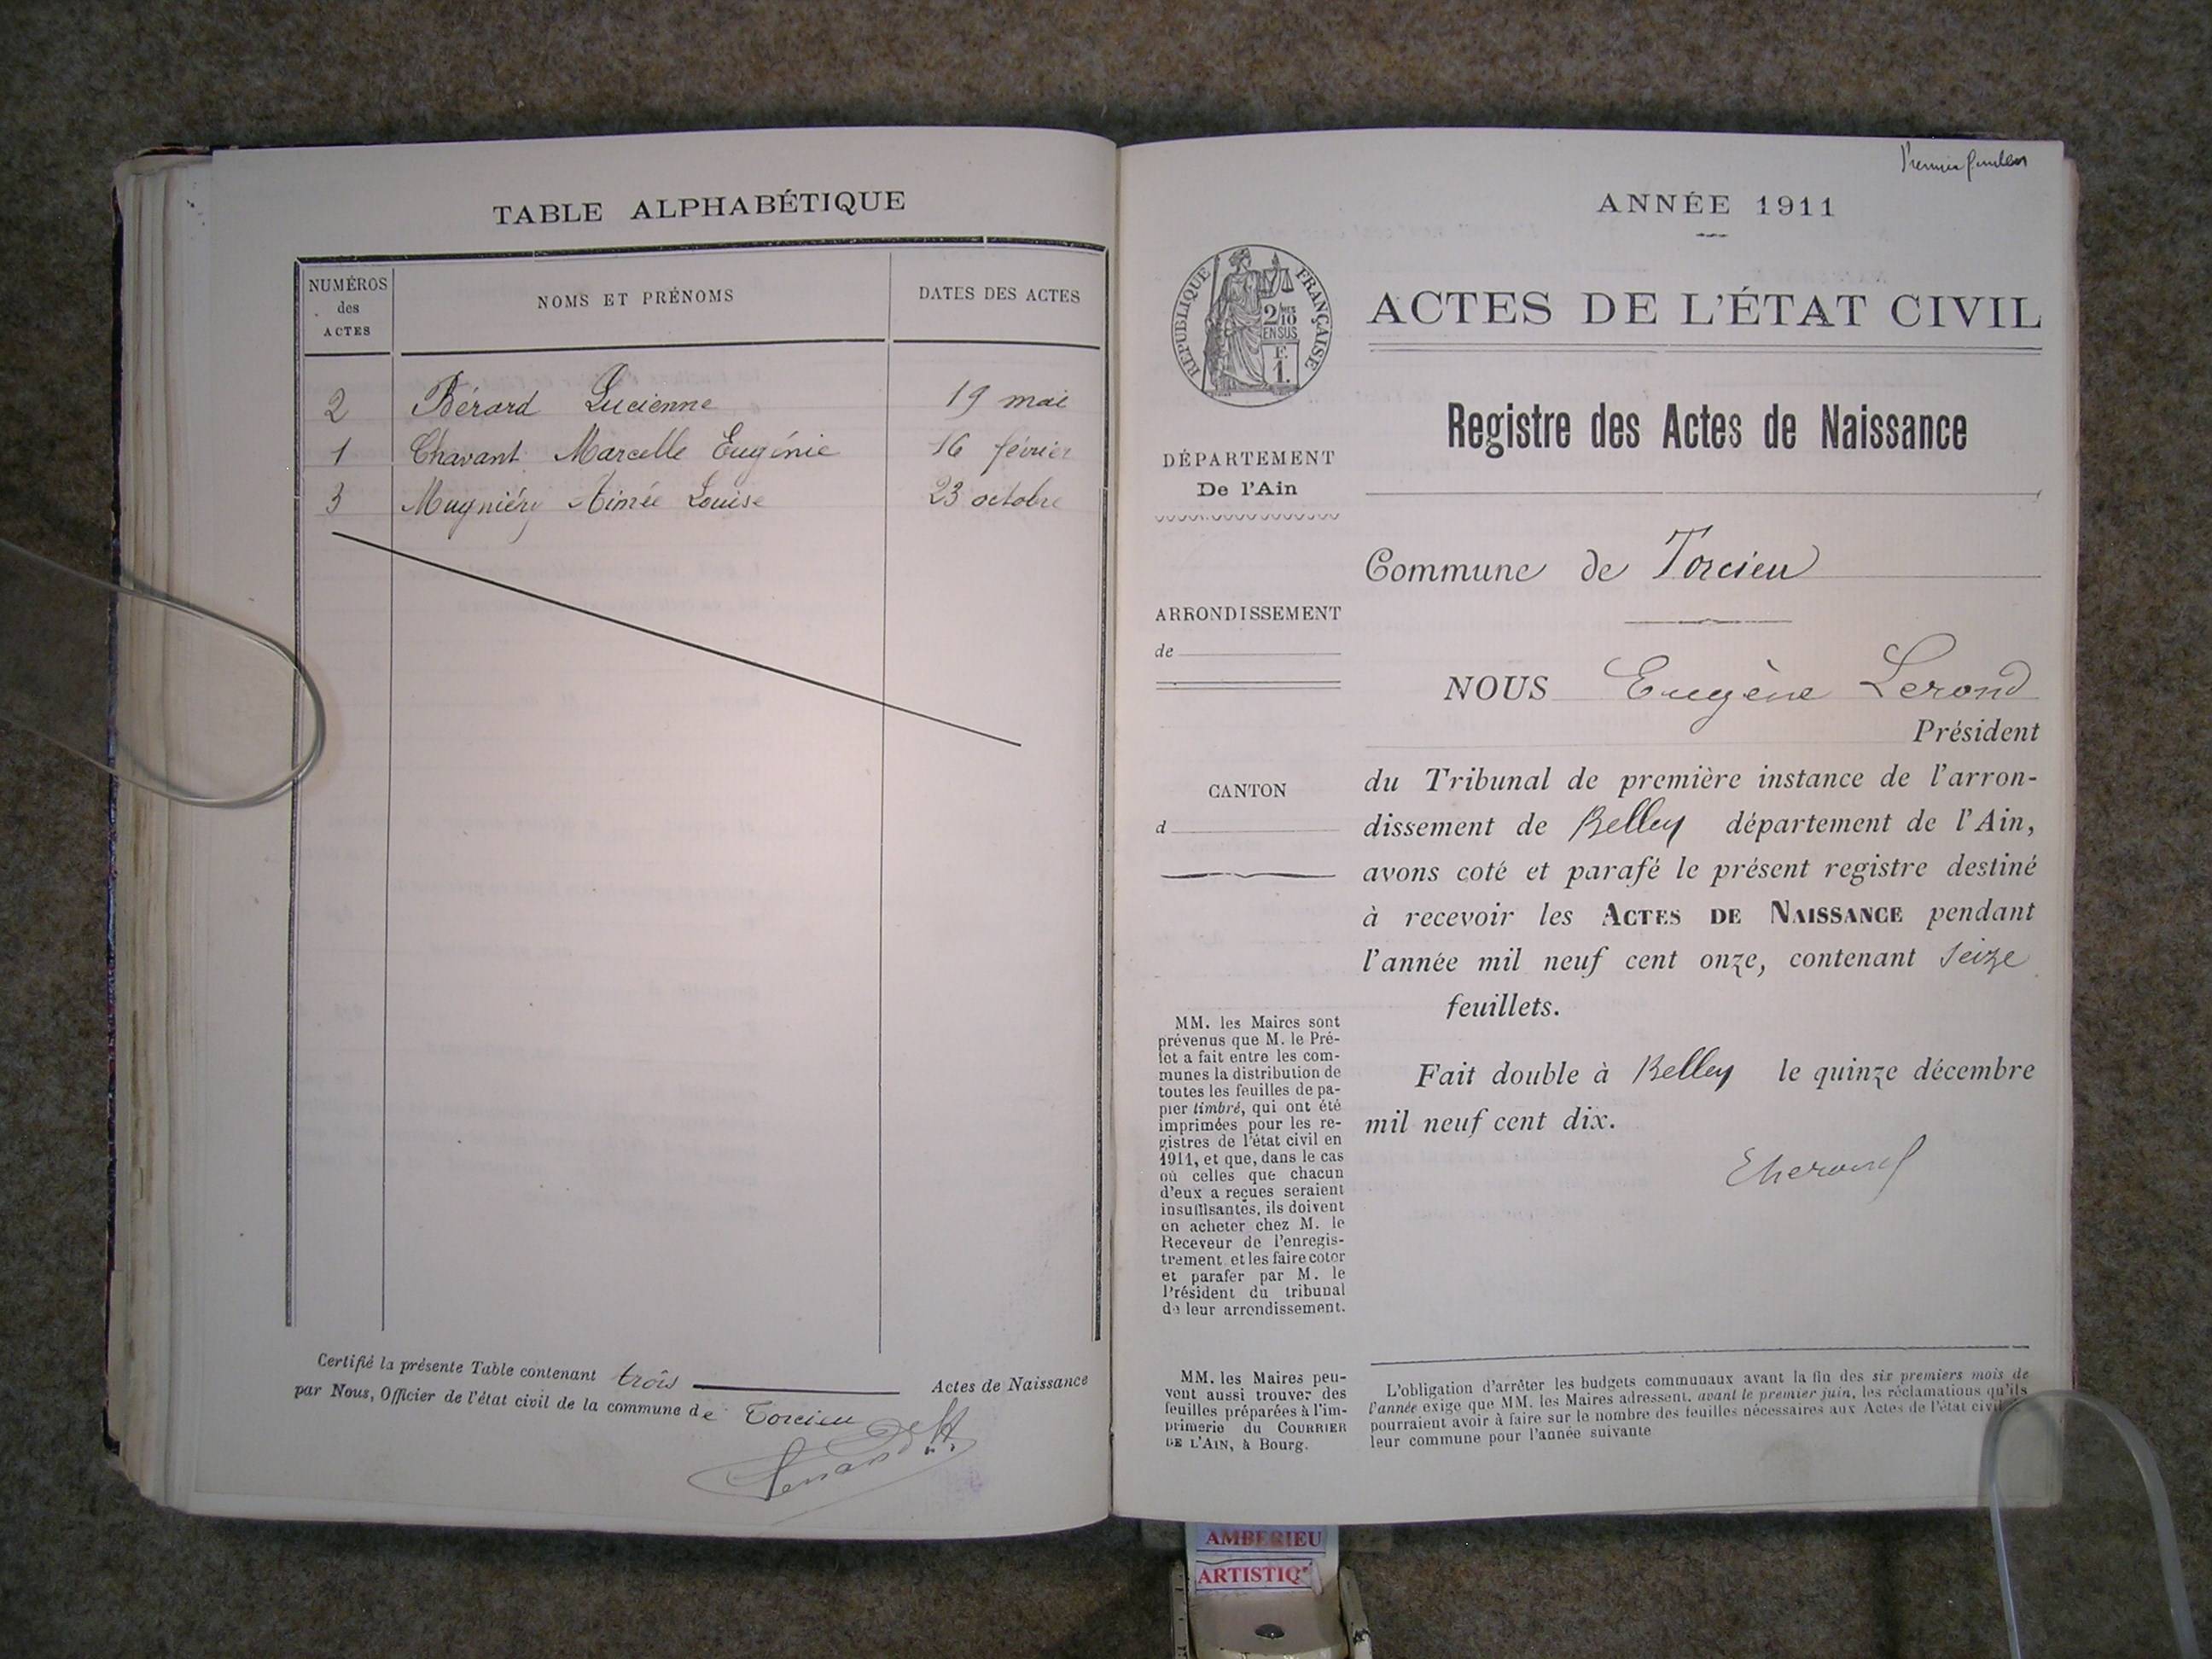 TABLE ALPHABÉTIQUE
NUMÉROS
des
ACTES
NOMS ET PRÉNOMS
DATES DES ACTES
2 Bérard Lucienne 19 mai
1 Chavant Marcelle Eugénie 16 février
3 Mugniéry Aimée Louise 23 octobre
Certifié la présente Table contenant trois Actes de Naissance
par Nous, Officier de l'état civil de la commune de Torcieu
Premier
ANNÉE 1911
RÉPUBLIQUE FRANÇAISE
2/10
EN SUS
F.
1.
ACTES DE L'ÉTAT CIVIL
Registre des Actes de Naissance
DÉPARTEMENT
De l'Ain
ARRONDISSEMENT
de
CANTON
d
MM. les Maires sont
prévenus que M. le Pré-
fet a fait entre les com-
munes la distribution de
toutes les feuilles de pa-
pier timbré, qui ont été
imprimées pour les re-
gistres de l'état civil en
1911, et que, dans le cas
où celles que chacun
d'eux a reçues seraient
insuffisantes, ils doivent
en acheter chez M. le
Receveur de l'enregis-
trement et les faire coter
et parafer par M. le
Président du tribunal
de leur arrondissement.
MM. les Maires peu-
vent aussi trouver des
feuilles préparées à l'im-
primerie du COURRIER
DE L'AIN, à Bourg.
Commune de Torcieu
NOUS Eugène Lerond
Président
du Tribunal de première instance de l'arron-
dissement de Belley département de l'Ain,
avons coté et parafé le présent registre destiné
à recevoir les ACTES DE NAISSANCE pendant
l'année mil neuf cent onze, contenant seize
feuillets.
Fait double à Belley le quinze décembre
mil neuf cent dix.
L'obligation d'arrêter les budgets communaux avant la fin des six premiers mois de
l'année exige que MM. les Maires adressent, avant le premier juin, les réclamations qu'ils
pourraient avoir à faire sur le nombre des feuilles nécessaires aux Actes de l'état civil
leur commune pour l'année suivante
AMBERIEU
ARTISTIQ